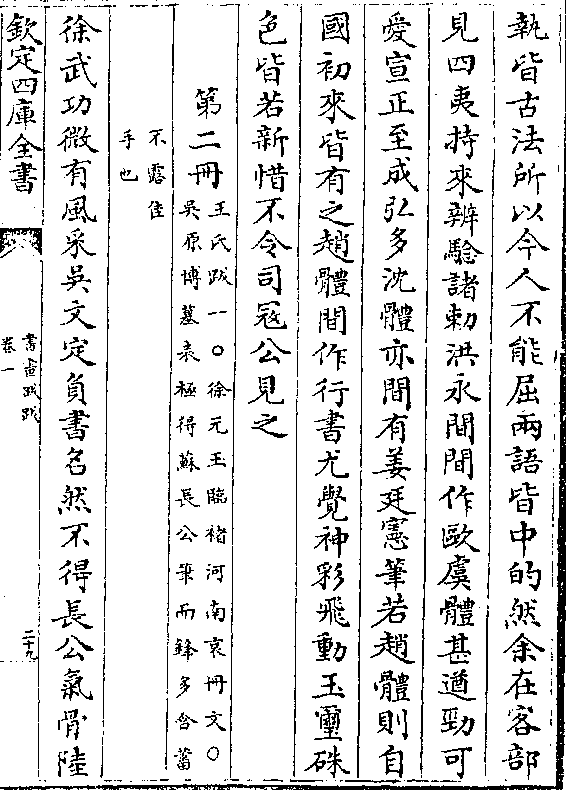 執皆古法所以今人不能屈兩語皆中的然余在客部
見四夷持來辨驗諸勅洪永間間作歐虞體甚遒勁可
愛宣正至成弘多沈體亦間有姜廷憲筆若趙體則自
國初來皆有之趙體間作行書尤覺神彩飛動玉璽硃
色皆若新惜不令司冦公見之
第二冊
王氏跋一○徐元玉臨褚河南哀冊文○
吳原博墓表極得蘇長公筆而鋒多含蓄
不露佳
手也
徐武功微有風采吳文定負書名然不得長公氣骨陸
欽定四庫全書
書畫跋跋
卷一
二十九